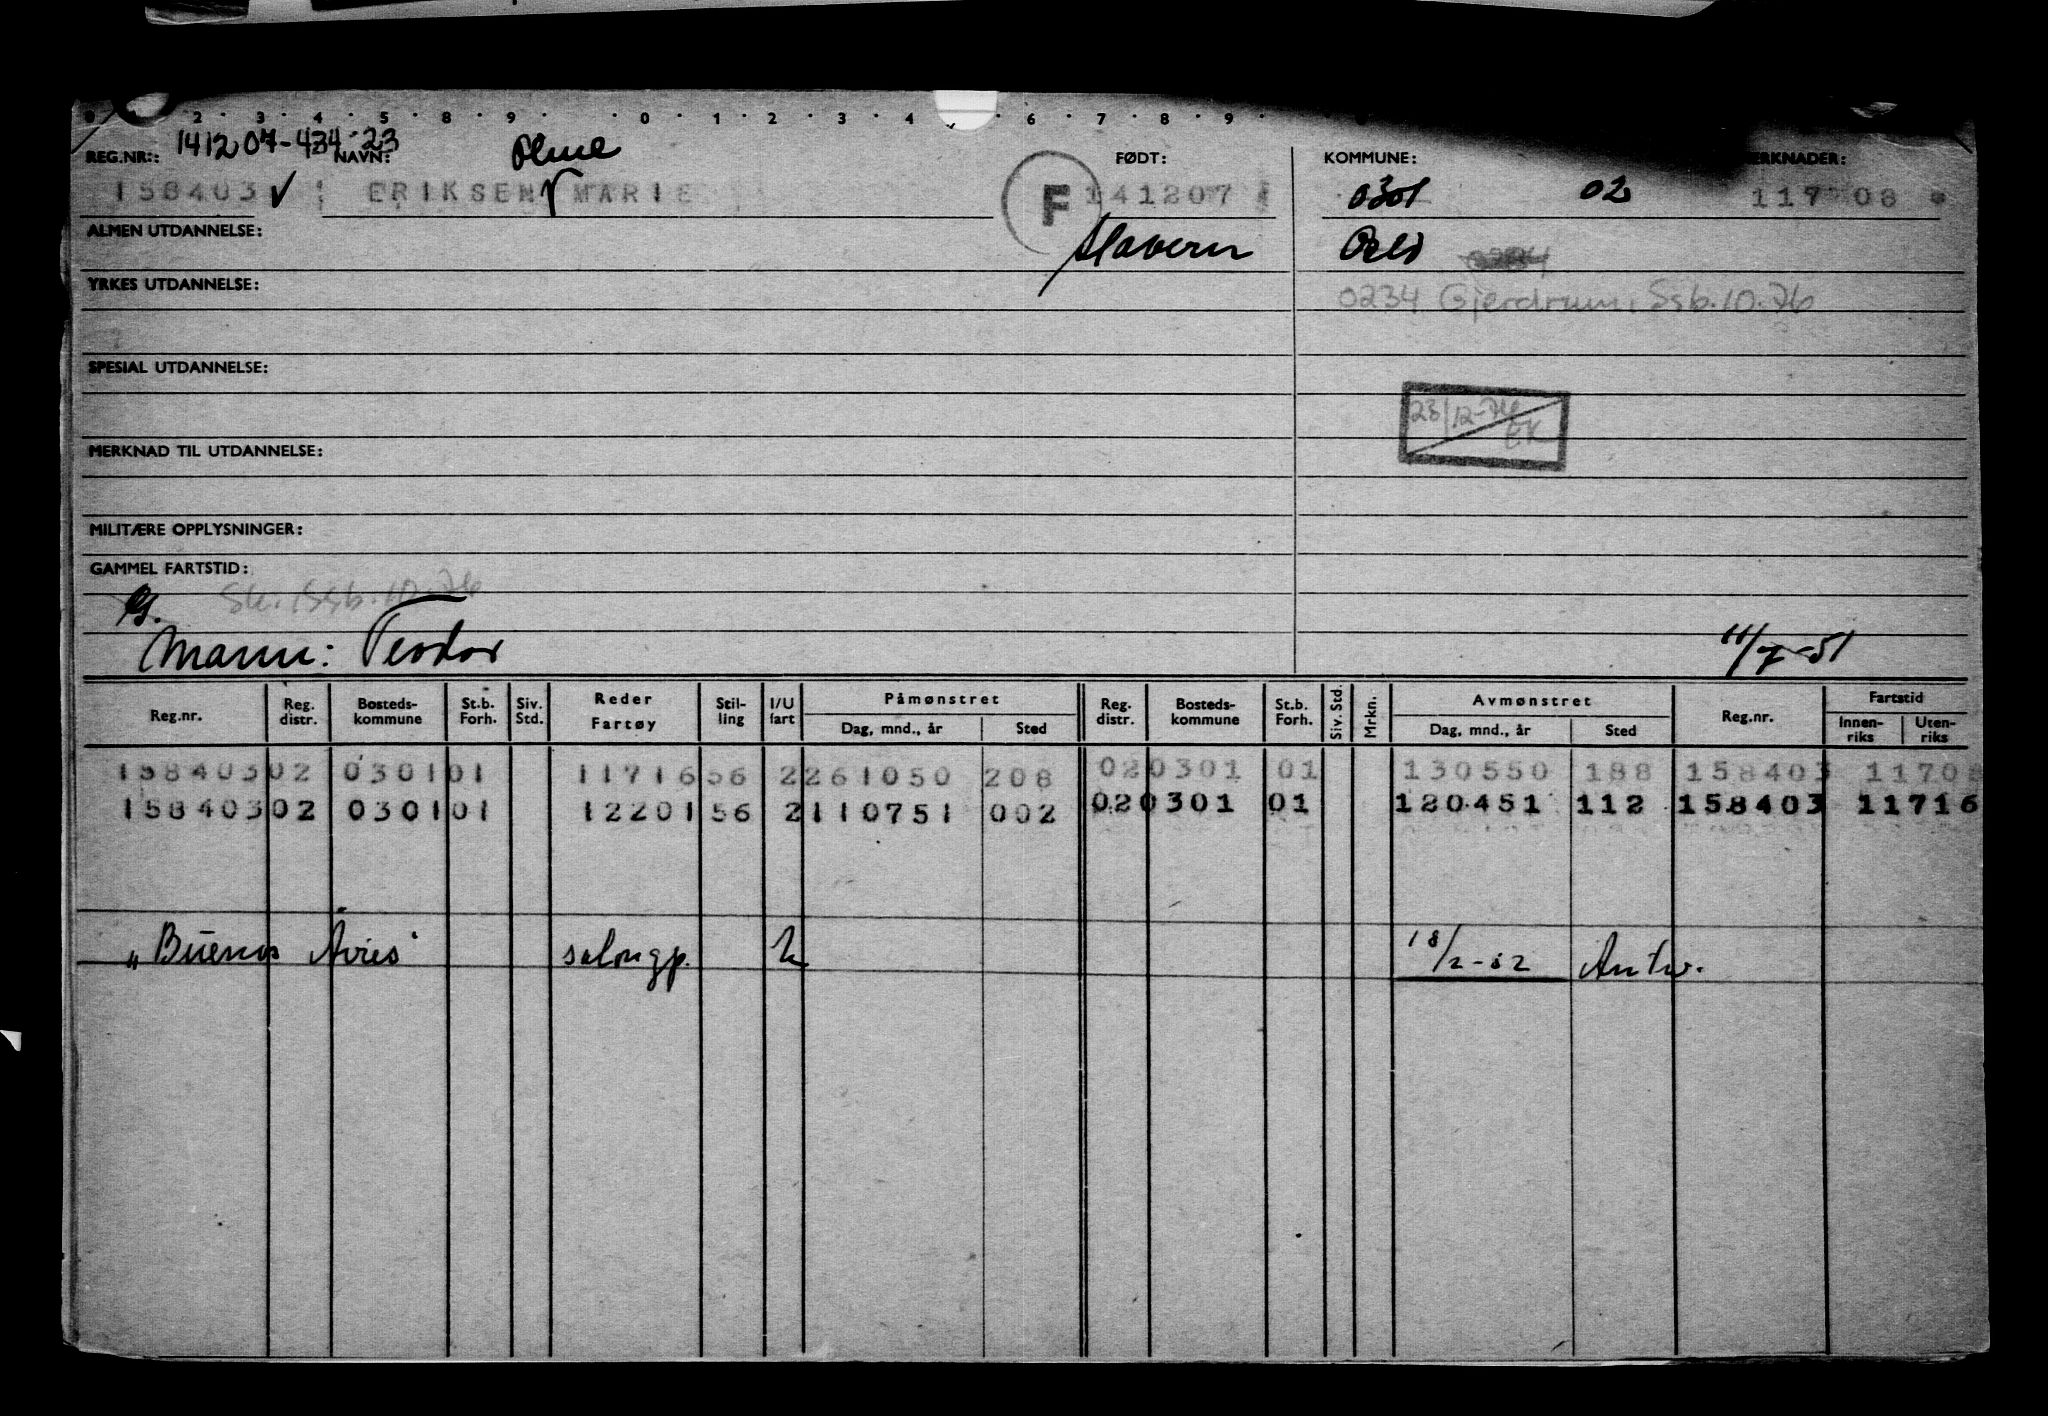 2 · 3 · 4 · 5 · 8 · 9 · 0 · 1 · 2 · 3 · 4 · 6 · 7 · 8 · 9 ·
141207-434-23
REG.NR.: NAVN: FØDT: KOMMUNE: MERKNADER:
158403 √ ERIKSEN MARIE F 141207 0301 02
ALMEN UTDANNELSE: Stavern Oslo
YRKES UTDANNELSE: 0234 Gjerdrum, Ssb. 10.76
SPESIAL UTDANNELSE:
23/12-76 EK
MERKNAD TIL UTDANNELSE:
MILITÆRE OPPLYSNINGER:
GAMMEL FARTSTID:
Sk. Ssb. 10.76
G.
Mann: Teodor 11/7-51
Reg.nr. Reg. distr. Bosteds-kommune St.b. Forh. Siv. Std. Reder Fartøy Stil-ling I/U fart Påmønstret Dag, mnd., år Sted Reg. distr. Bosteds-kommune St.b. Forh. Siv. Std. Mrkn. Avmønstret Dag, mnd., år Sted Reg.nr. Fartstid Innen-riks Uten-riks
158403 02 0301 01 11716 56 2 261050 208 02 0301 01 130550 188 158403 11708
158403 02 0301 01 12201 56 2 110751 002 02 0301 01 120451 112 158403 11716
„Buenos Aires" salongp. U 18/2-52 Antw.